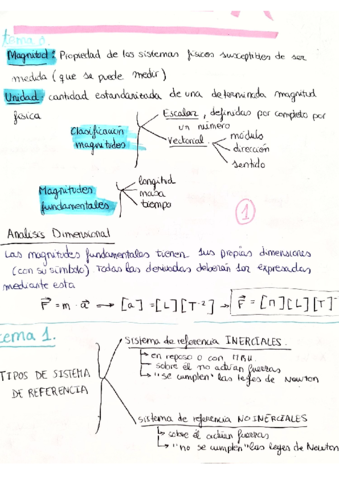 tema 0.
Magnitud: Propiedad de los sistemas físicos susceptibles de ser
medida (que se puede medir)
Unidad cantidad estandarizada de una determinada magnitud
física
Escalar, definidas por completo por
un número
Clasificación
magnitudes
Vectorial
módulo
dirección
sentido
Magnitudes
fundamentales
longitud
masa
tiempo
1
Analisis Dimensional
Las magnitudes fundamentales tienen sus propias dimensiones
(con su símbolo) todas las derivadas deberán ser expresadas
mediante esta
F = m · a → [a] = [L][T⁻²] → F = [M][L][T]⁻
tema 1.
TIPOS DE SISTEMA
DE REFERENCIA
sistema de referencia INERCIALES.
en reposo o con MRU.
sobre él no actúan fuerzas
"se cumplen" las leyes de Newton
sistema de referencia NO INERCIALES
sobre él actúan fuerzas
"no se cumplen" las leyes de Newton